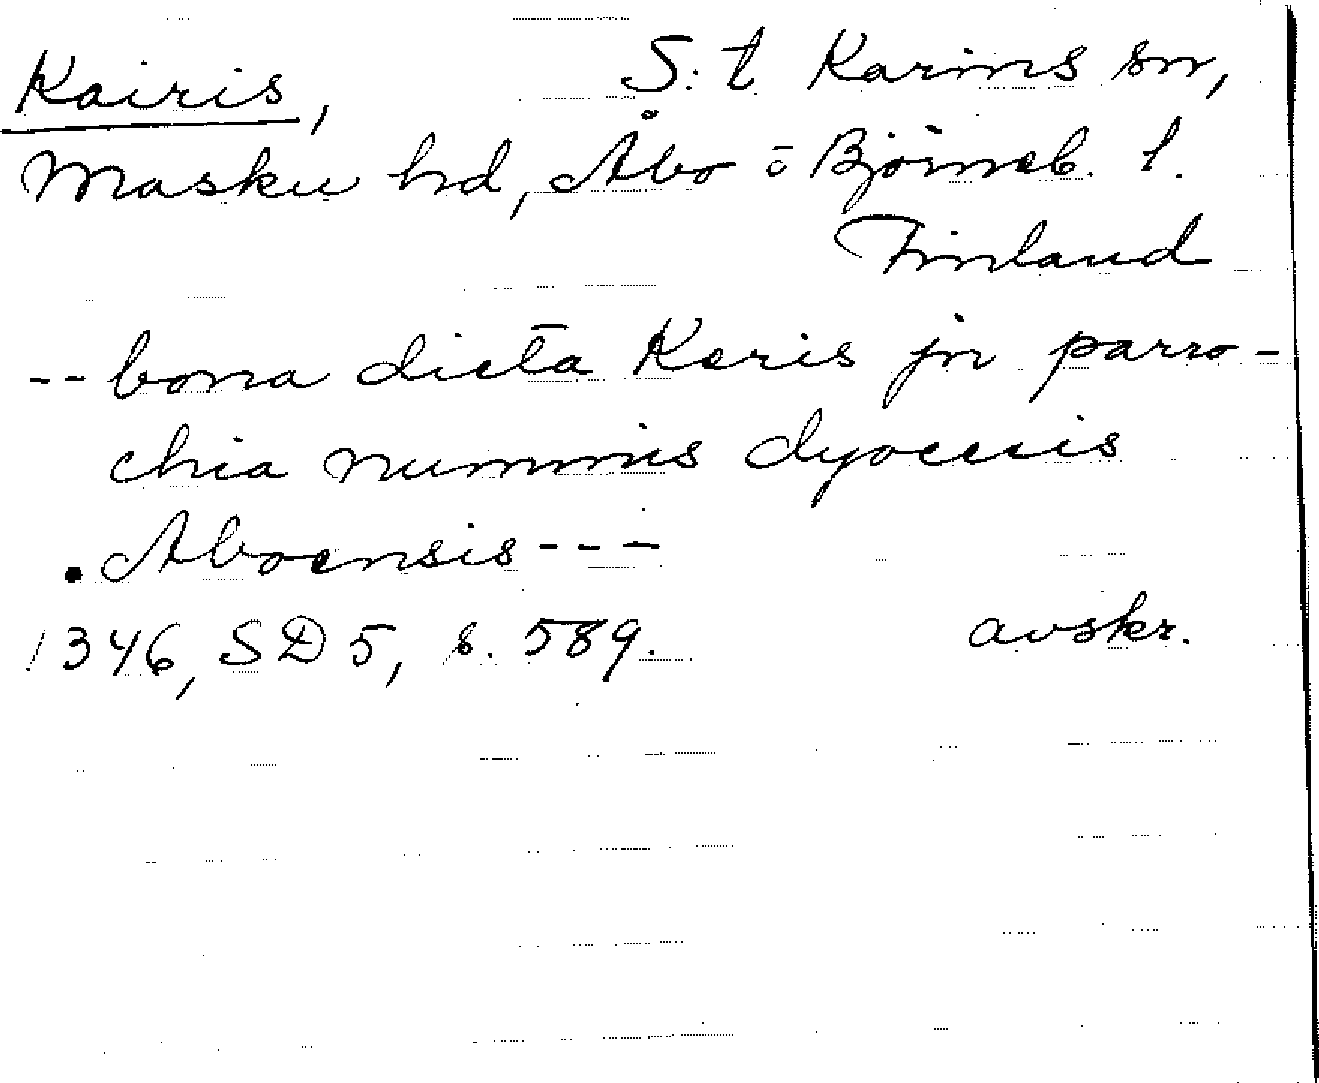 Kairis, S:t Karins sn,
Masku hd, Åbo o Björneb. l.
Finland
-- bona dicta Keris jn parro-
chia nummis dyocesis
Aboensis ---
1346, SD 5, s. 589. avskr.